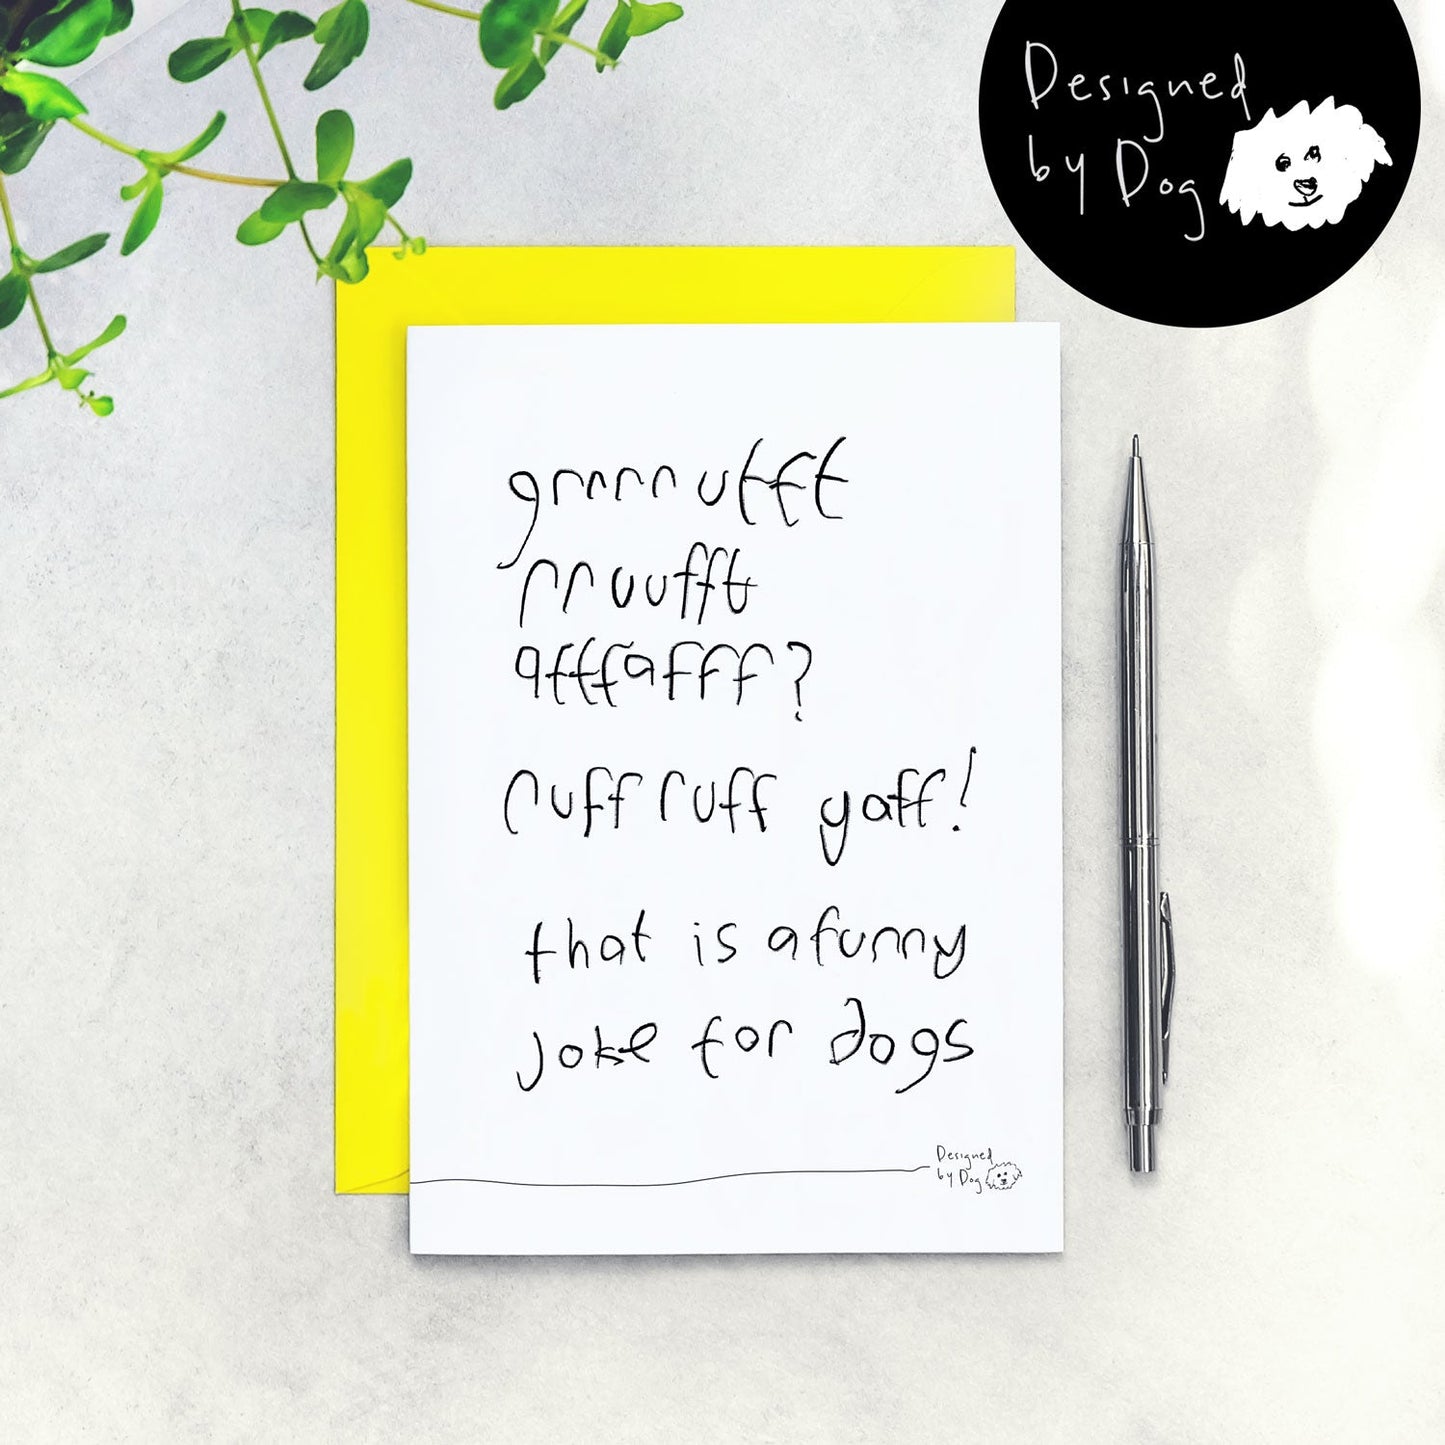 Designed
by Dog
grrrrufff
rruufff
afffafff?
ruff ruff yaff!
that is a funny
joke for dogs
Designed
by Dog